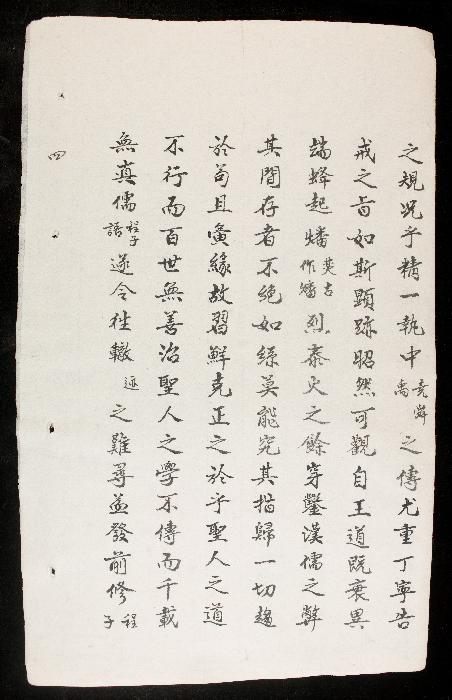 之規況乎精一執中堯舜禹之傳尤重丁寧告
戒之旨如斯顯跡昭然可觀自王道既衰異
端蜂起燔焚古作燔烈秦火之餘穿鑿漢儒之弊
其間存者不絕如綫莫能究其指歸一切趨
於苟且夤緣故習鮮克正之於乎聖人之道
不行而百世無善治聖人之學不傳而千載
無真儒程子語遂令往轍迹之難尋益發前修程子
四